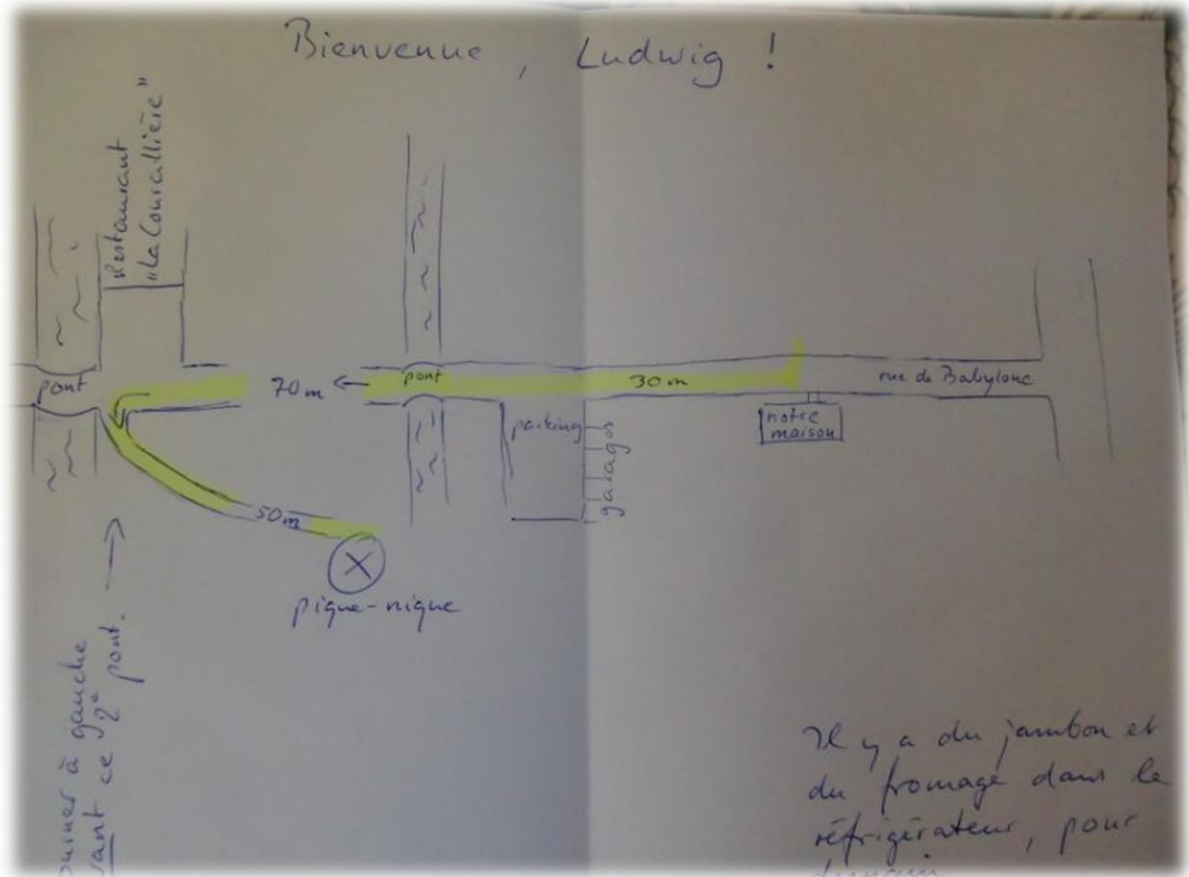 Bienvenue, Ludwig !
Restaurant
"La Courallière"
pont
70 m ←
pont
30 m
rue de Babylone
notre
maison
parking
garages
50 m
X
pique-nique
ourner à gauche
vant ce 2e pont. →
Il y a du jambon et
du fromage dans le
réfrigérateur, pour